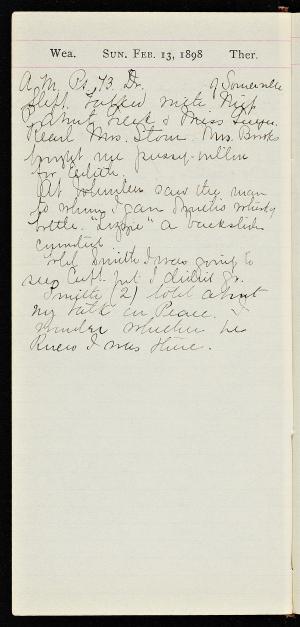 Wea. SUN. FEB. 13, 1898 Ther.
A.M. Ps. 73. Dr. of Somerville
Dept. talked with
about & Miss
Pearl Mrs. Storn. Mrs. Brooks
brought me pussy-willow
for Edith.
At saw the man
to whom I gave Smith's whisky
bottle. "Lizzie" a backslider
converted.
Told Smith I was going to
see Cuff. but I didn't go.
Smith (2) told about
my talk on Peace. I
wonder whether he
knew I was there.